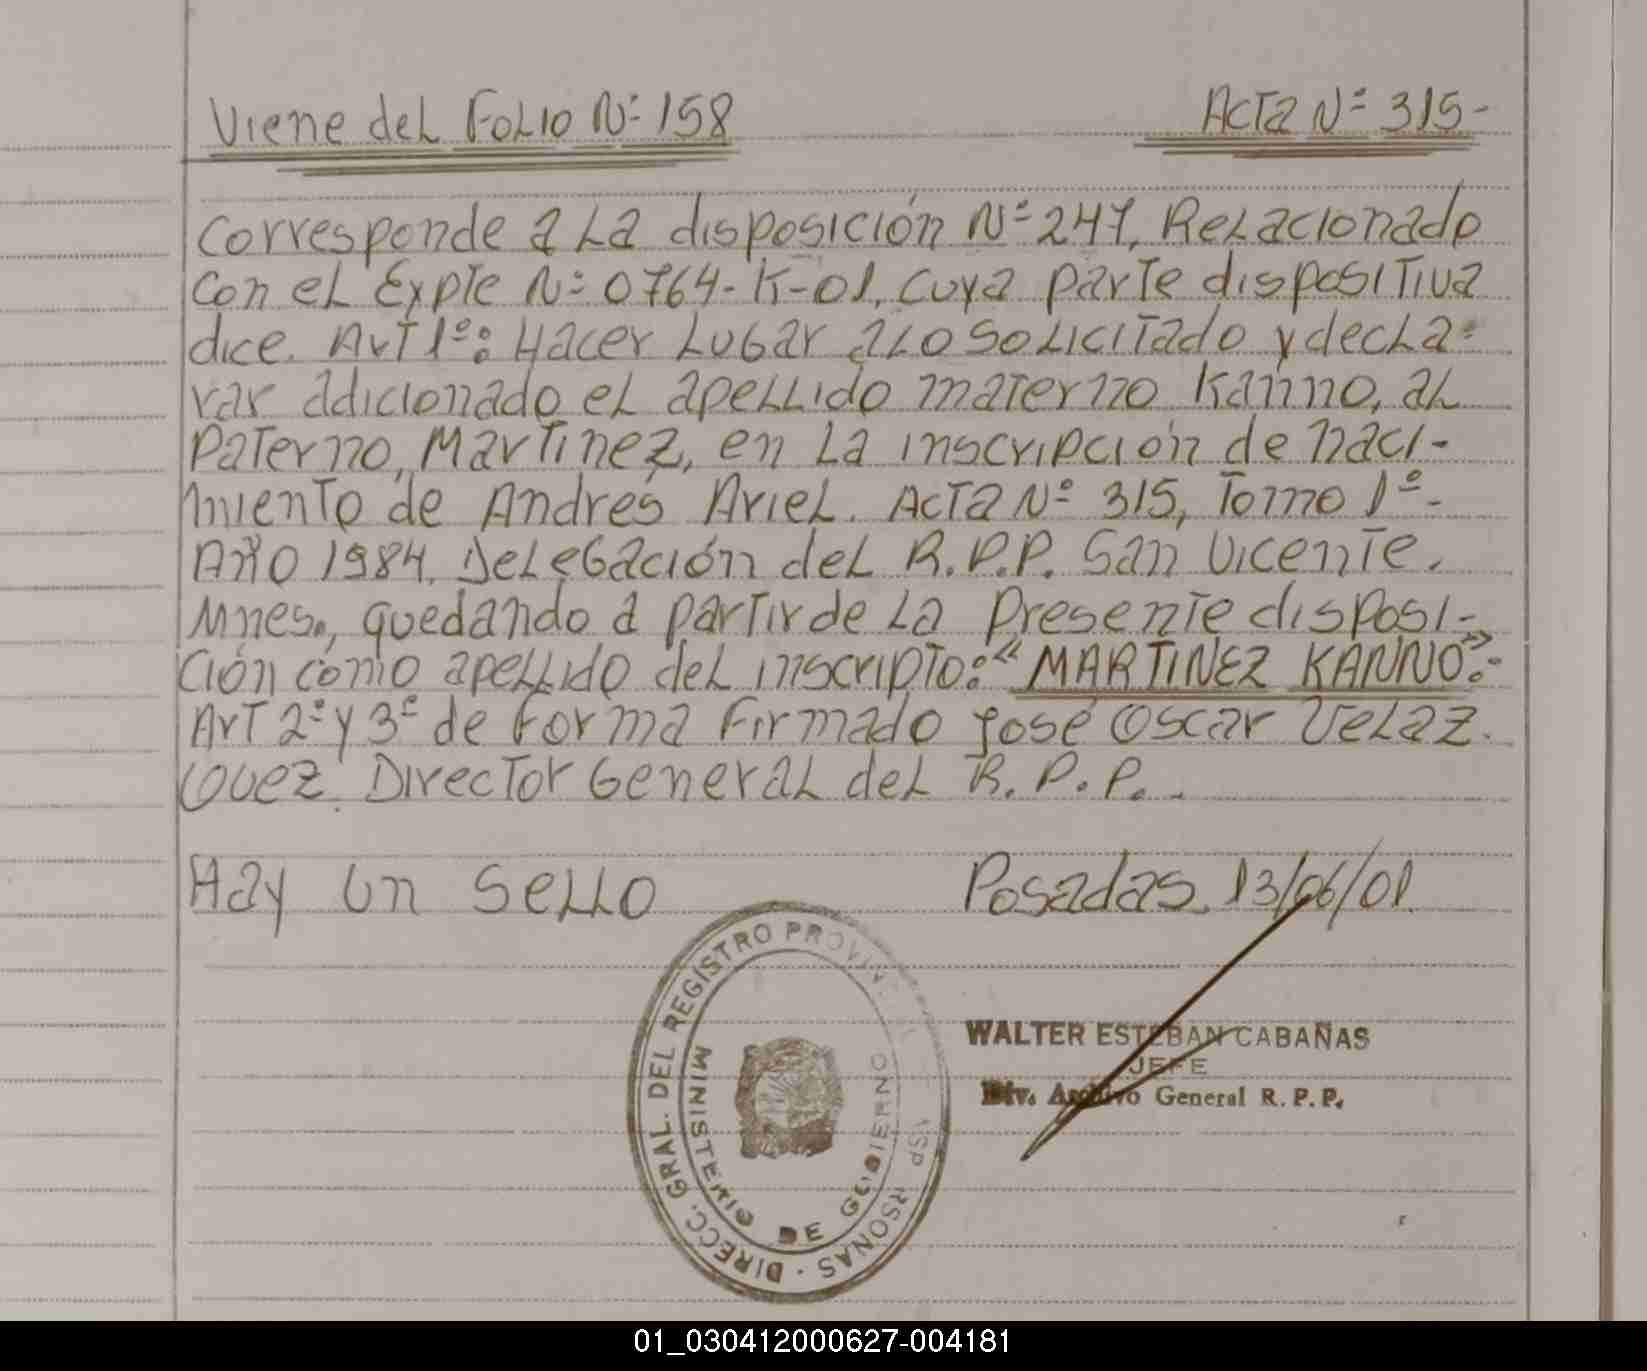 Viene del Folio Nº 158
Acta Nº 315-
Corresponde a la disposición Nº 247, Relacionado
con el Expte Nº 0764-K-01, cuya parte dispositiva
dice. Art 1º: Hacer Lugar a lo solicitado y decla-
rar adicionado el apellido materno Kanno, al
Paterno, Martinez, en la inscripción de naci-
miento de Andrés Ariel. Acta Nº 315, Tomo 1º-
Año 1984. Delegación del R.P.P. San Vicente.
Mnes., quedando a partir de la presente disposi-
ción como apellido del inscripto: "MARTINEZ KANNO".-
Art 2º y 3º de forma Firmado José Oscar Velaz
quez. Director General del R.P.P..-
Hay un sello
Posadas, 13/06/01.
DIRECC. GRAL. DEL REGISTRO PROVIN
RSONAS
MINISTERIO DE GOBIERNO
WALTER ESTEBAN CABAÑAS
JEFE
Div. Archivo General R. P. P.
01_030412000627-004181